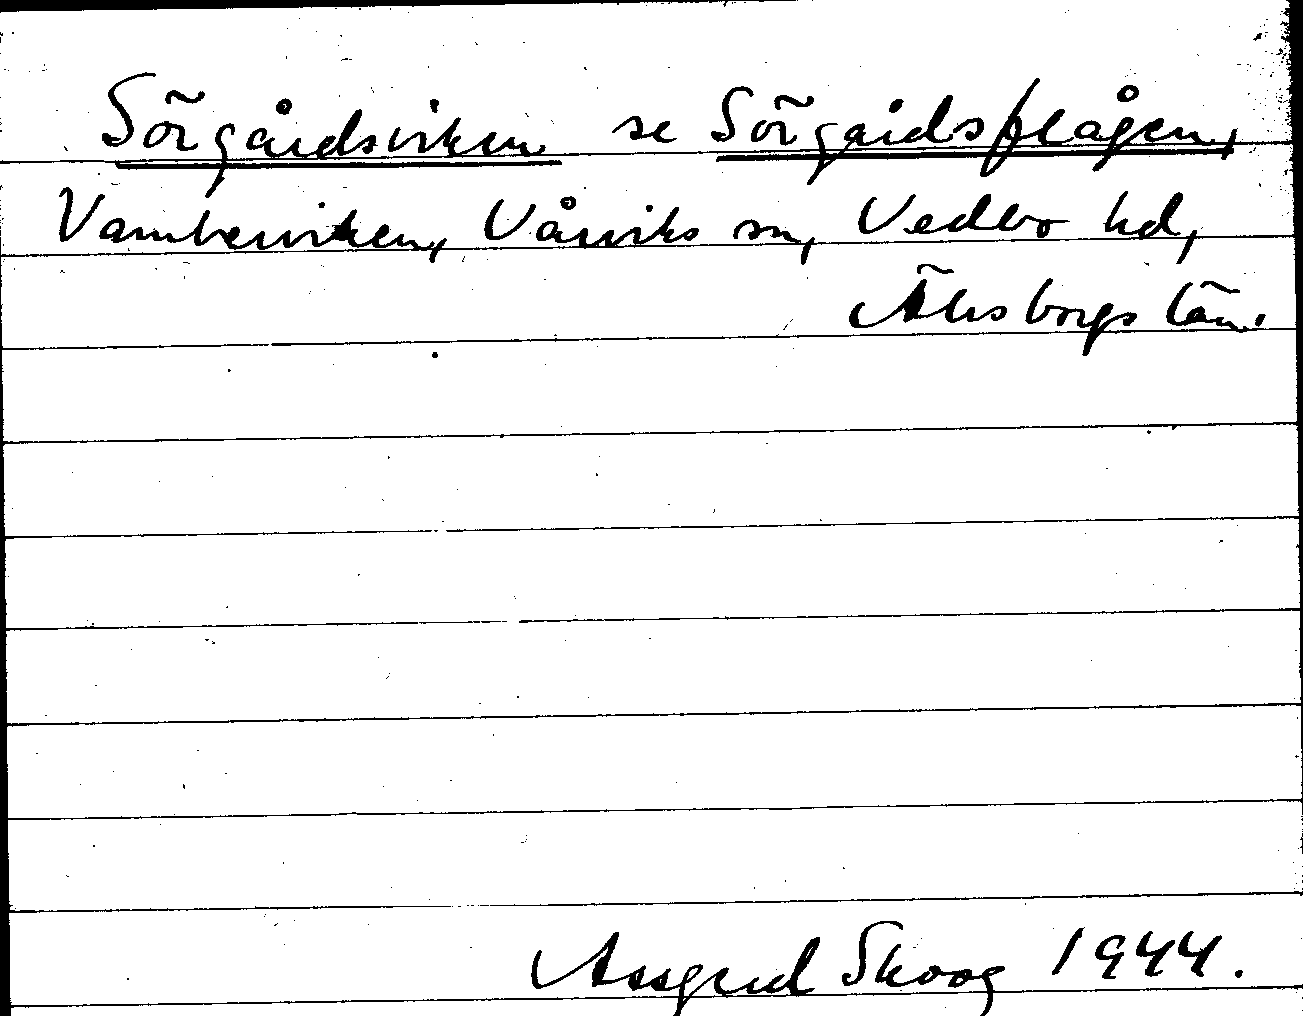 Sörgårdsviken se Sörgårdsplågen,
Vamberviken, Vårviks sn, Vedbo hd,
Älvsborgs län.
Assgrud Skoog 1944.